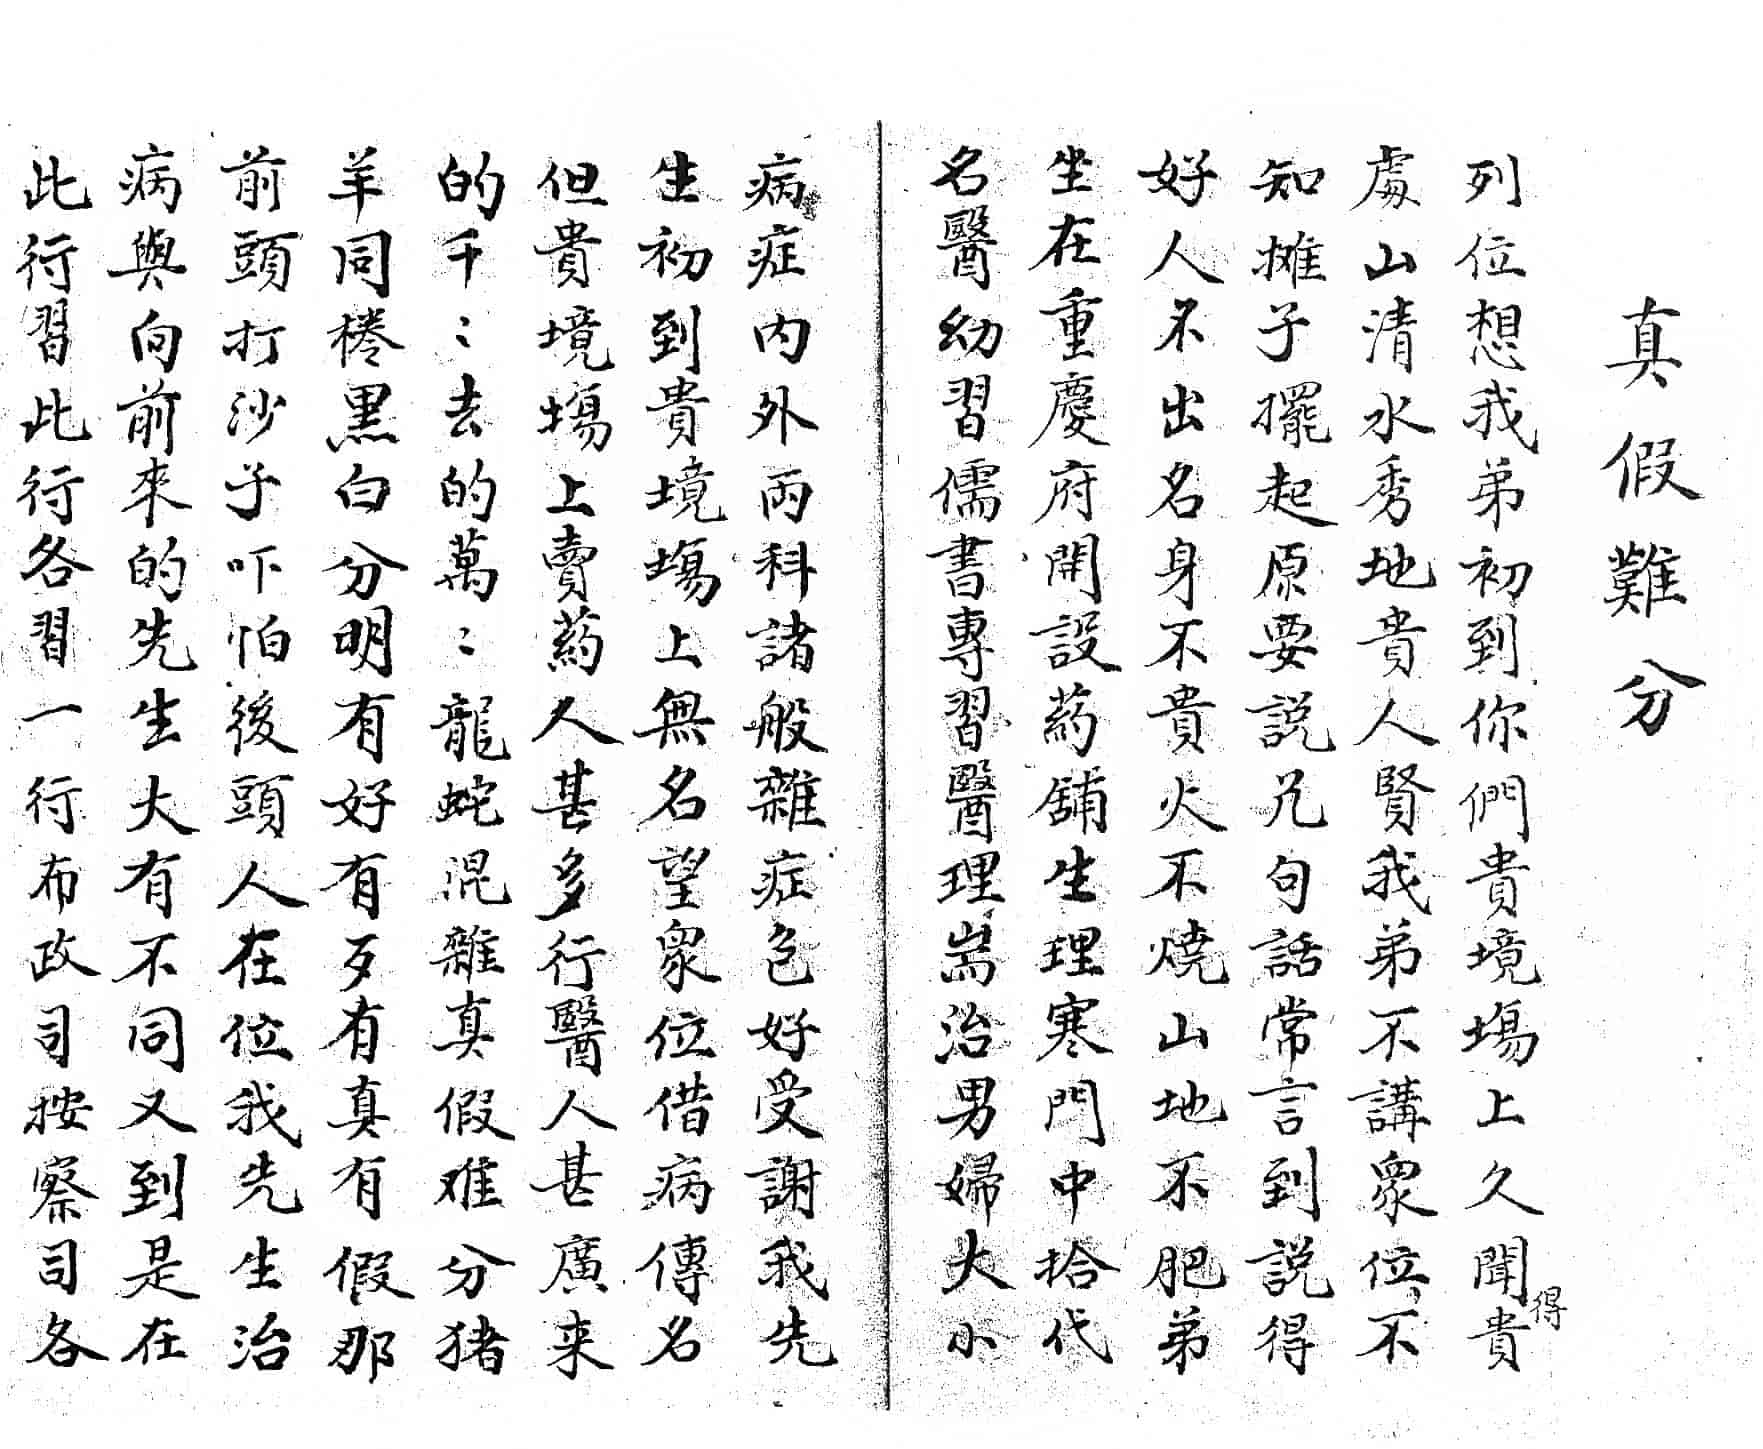 真假難分
列位想我弟初到你們貴境塲上久聞得貴
處山清水秀地貴人賢我弟不講衆位不
知攤子擺起原要説几句話常言到説得
好人不出名身不貴火不燒山地不肥弟
坐在重慶府開設葯舖生理寒門中拾代
名醫幼習儒書專習醫理耑治男婦大小
病症内外両科諸般雜症包好受謝我先
生初到貴境塲上無名望衆位借病傳名
但貴境塲上賣葯人甚多行醫人甚廣来
的千〻去的萬〻龍蛇混雜真假难分猪
羊同棬黒白分明有好有歹有真有假那
前頭打沙子吓怕後頭人在位我先生治
病與向前來的先生大有不同又到是在
此行習此行各習一行布政司按察司各